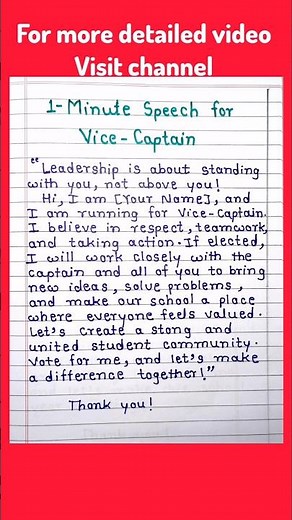 For more detailed video
Visit channel
1-Minute Speech for
Vice-Captain
"Leadership is about standing
with you, not above you!
Hi, I am [Your Name], and
I am running for Vice-Captain.
I believe in respect, teamwork,
and taking action. If elected,
I will work closely with the
captain and all of you to bring
new ideas, solve problems,
and make our school a place
where everyone feels valued.
Let's create a stong and
united student community.
Vote for me, and let's make
a difference together!"
Thank you!